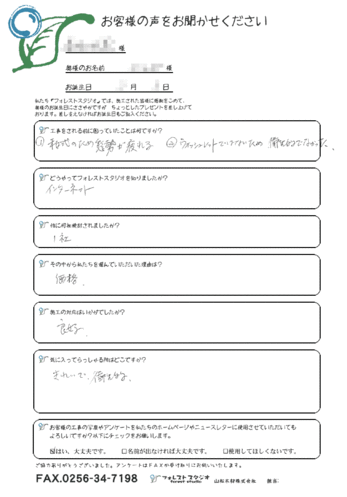 お客様の声をお聞かせください
様
奥様のお名前 様
お誕生日 月 日
私たち『フォレストスタジオ』では、施工された皆様に感謝をこめて、
奥様のお誕生日にささやかですが ちょっとしたプレゼントをさし上げて
おります。差しさえなければお誕生日もご記入ください。
工事をされる前に困っていたことは何ですか?
① 和式のため姿勢が疲れる ② ウォシュレットついてないため 衛生的でなかった。
どうやってフォレストスタジオを知りましたか?
インターネット
他に何社検討されましたか?
1社
その中から私たちを選んでいただいた理由は?
価格
施工の対応はいかがでしたか?
良好
気に入ってらっしゃる所はどこですか?
きれいで、衛生的。
お客様の工事の写真やアンケートを私たちのホームページやニュースレターに使用させていただいても
よろしいですか?以下にチェックをお願いします。
はい、大丈夫です。 □名前が出なければ大丈夫です。 □使用してほしくないです。
ご協力ありがとうございました。アンケートはFAXか受け取りにお伺いいたします。
FAX.0256-34-7198
フォレストスタジオ
forest studio
山形石材株式会社